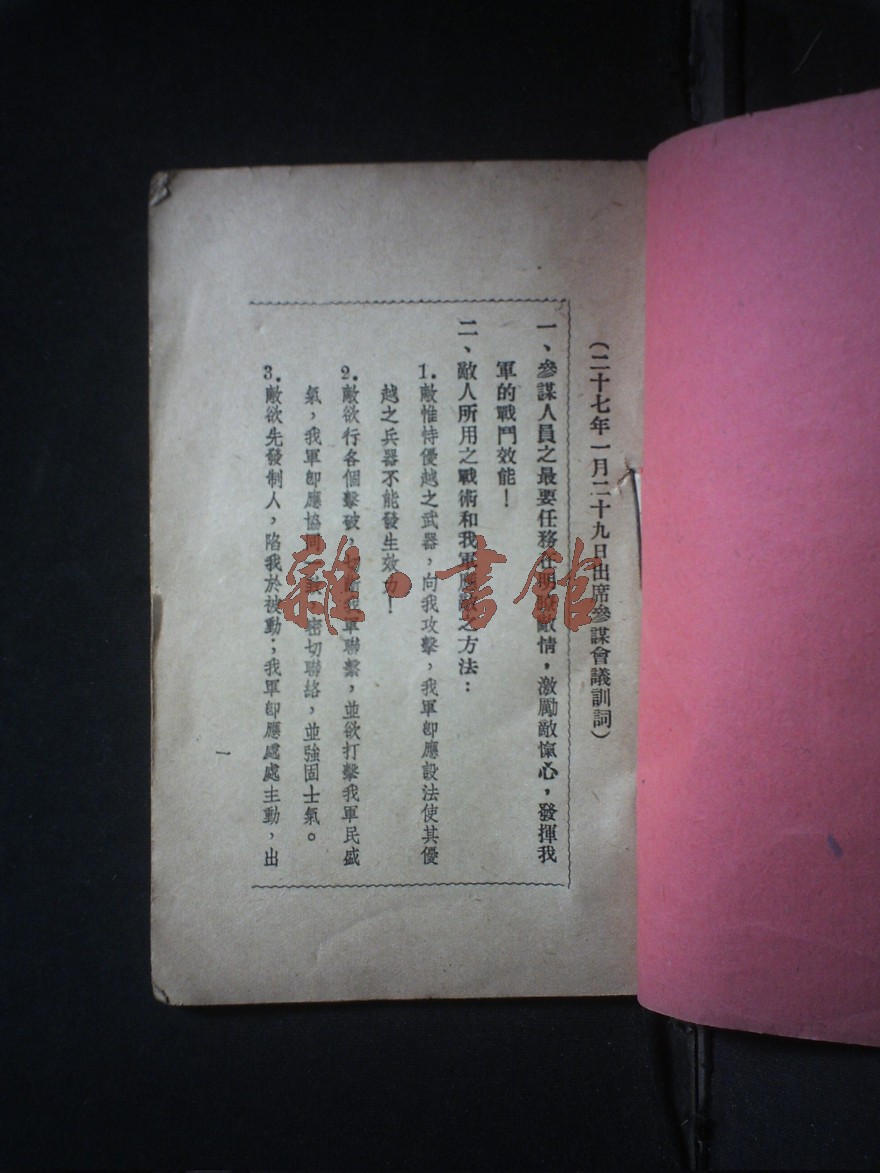 (二十七年一月二十九日出席參謀會議訓詞)
一、參謀人員之最要任務在明瞭敵情，激勵敵愾心，發揮我
軍的戰鬥效能！
二、敵人所用之戰術和我軍應敵之方法：
1.敵惟恃優越之武器，向我攻擊，我軍卽應設法使其優
越之兵器不能發生效力！
2.敵欲行各個擊破，切斷我軍聯繫，並欲打擊我軍民盛
氣，我軍卽應協同一致，密切聯絡，並強固士氣。
3.敵欲先發制人，陷我於被動；我軍卽應處處主動，出
一
雜·書館